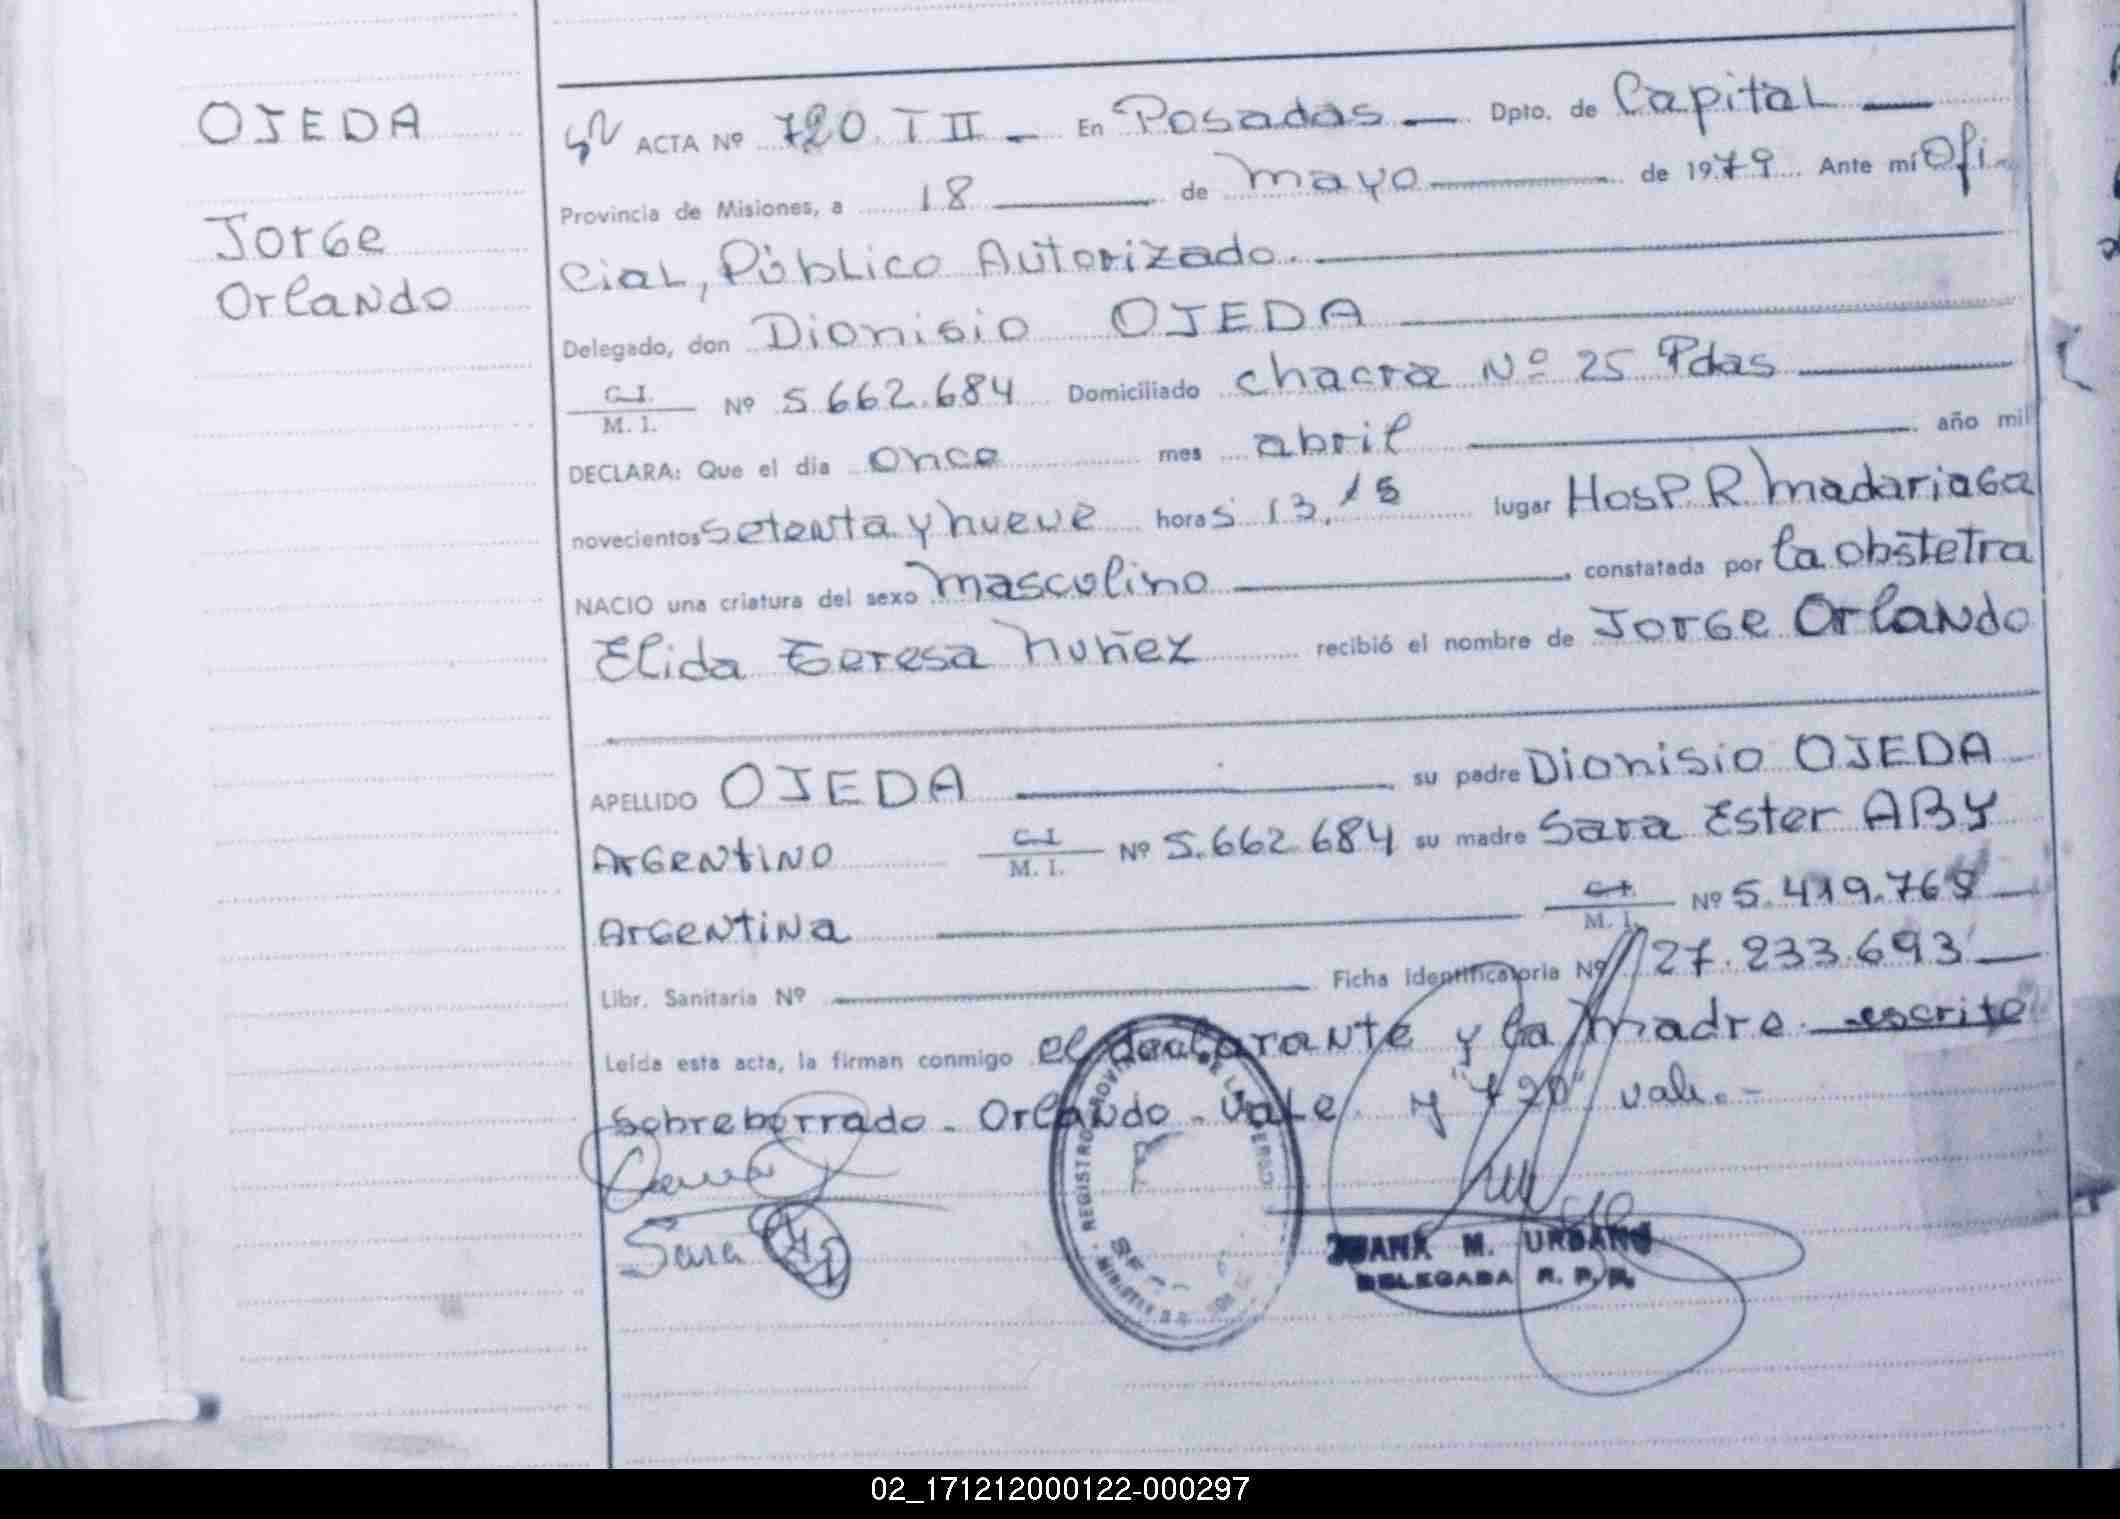 OJEDA
Jorge
Orlando
ACTA Nº 720 T II - En Posadas — Dpto. de Capital —
Provincia de Misiones, a 18 de mayo de 1979 Ante mí Ofi-
cial, Público Autorizado.
Delegado, don Dionisio OJEDA
C.I.
M. I. Nº 5.662.684 Domiciliado chacra Nº 25 Pdas
DECLARA: Que el día once mes abril año mil
novecientos setenta y nueve horas 13,15 lugar Hosp R madariaga
NACIO una criatura del sexo masculino constatada por la obstetra
Elida Teresa Nuñez recibió el nombre de Jorge Orlando
APELLIDO OJEDA su padre Dionisio OJEDA
Argentino C.I.
M. I. Nº 5.662.684 su madre Sara Ester ABY
Argentina C.I.
M. I. Nº 5.419.768
Libr. Sanitaria Nº Ficha identificatoria Nº 27.233.693
Leída esta acta, la firman conmigo el declarante y la madre. escrito
sobreborrado - Orlando - vale. y "720" vale. -
Sara
JUANA M. URBANO
DELEGADA R. P. P.
02_171212000122-000297